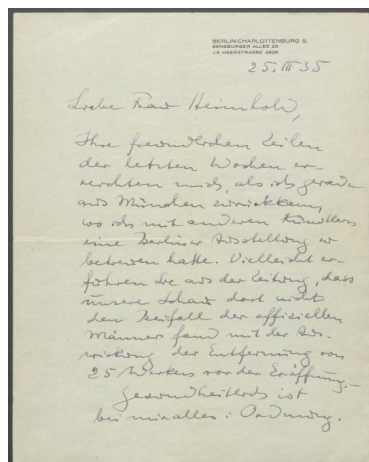 BERLIN-CHARLOTTENBURG 9,
SENSBURGER ALLEE 25
J 9 HEERSTRASSE 4828
25. III 35
Liebe Frau
Ihre freundlichen Zeilen
der letzten Wochen er-
reichten mich, als ich gerade
aus München zurückkam,
wo ich mit anderen Künstlern
eine Berliner Ausstellung zu
betreuen hatte. Vielleicht er-
fuhren Sie aus der Zeitung, dass
unsere Schau dort nicht
den Beifall der offiziellen
Männer fand mit der Aus-
wirkung der Entfernung von
25 Werken vor der Eröffnung.–
Gesundheitlich ist
bei mir alles i. Ordnung.